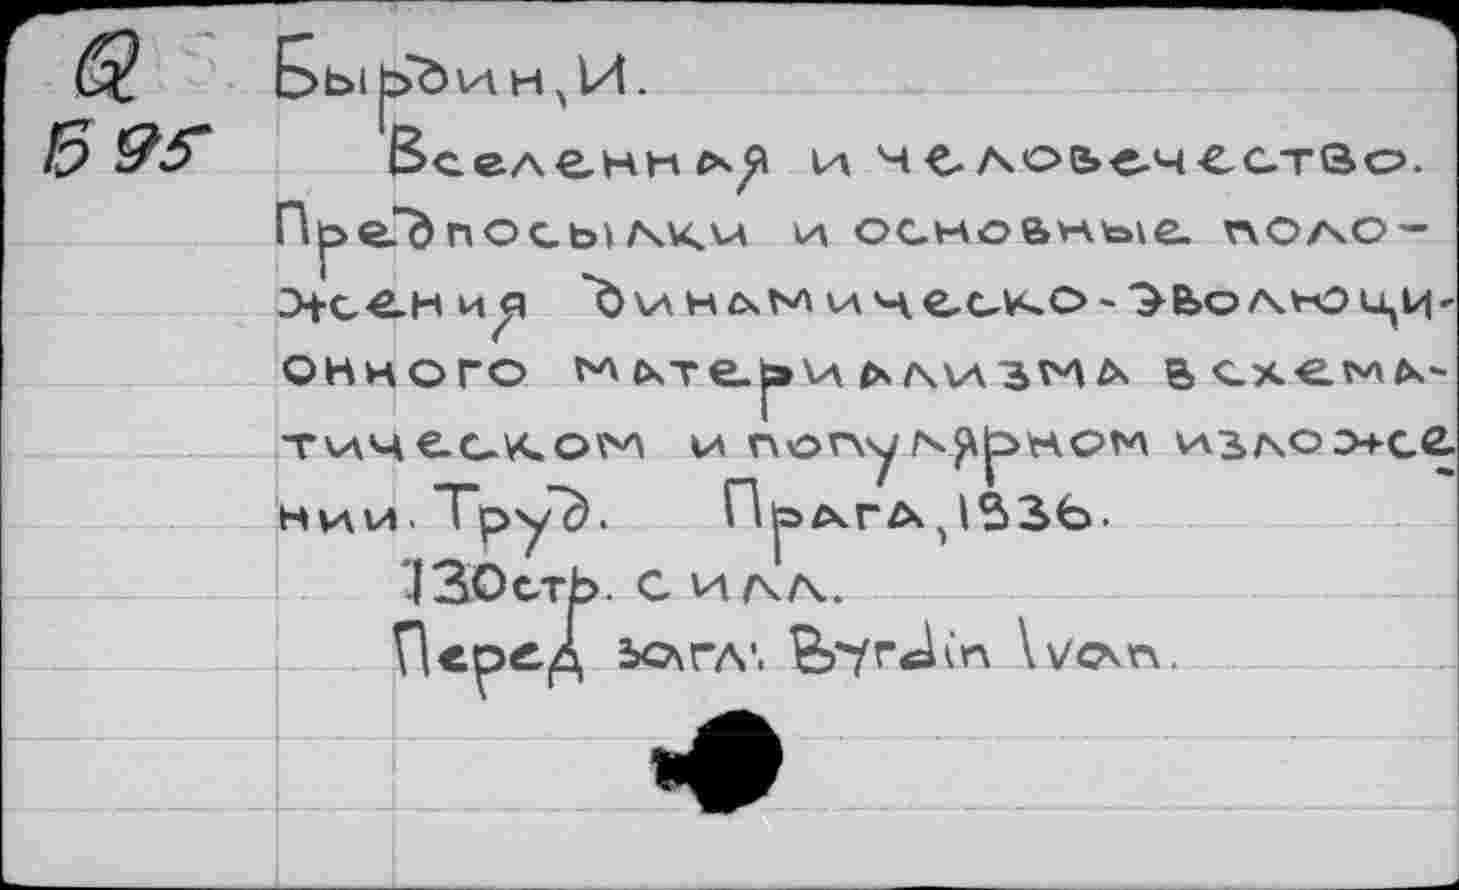 Б 95
Бырдин, И.
Вселенная и человечество.
Предпосылки и основные поло-
жения динамическо-эволюци-
онного материализма в схема-
тическом и популярном изложе
нии. Труд. Прага, 1936.
130стр. с илл.
Перед загл: Byrdin Ivan.